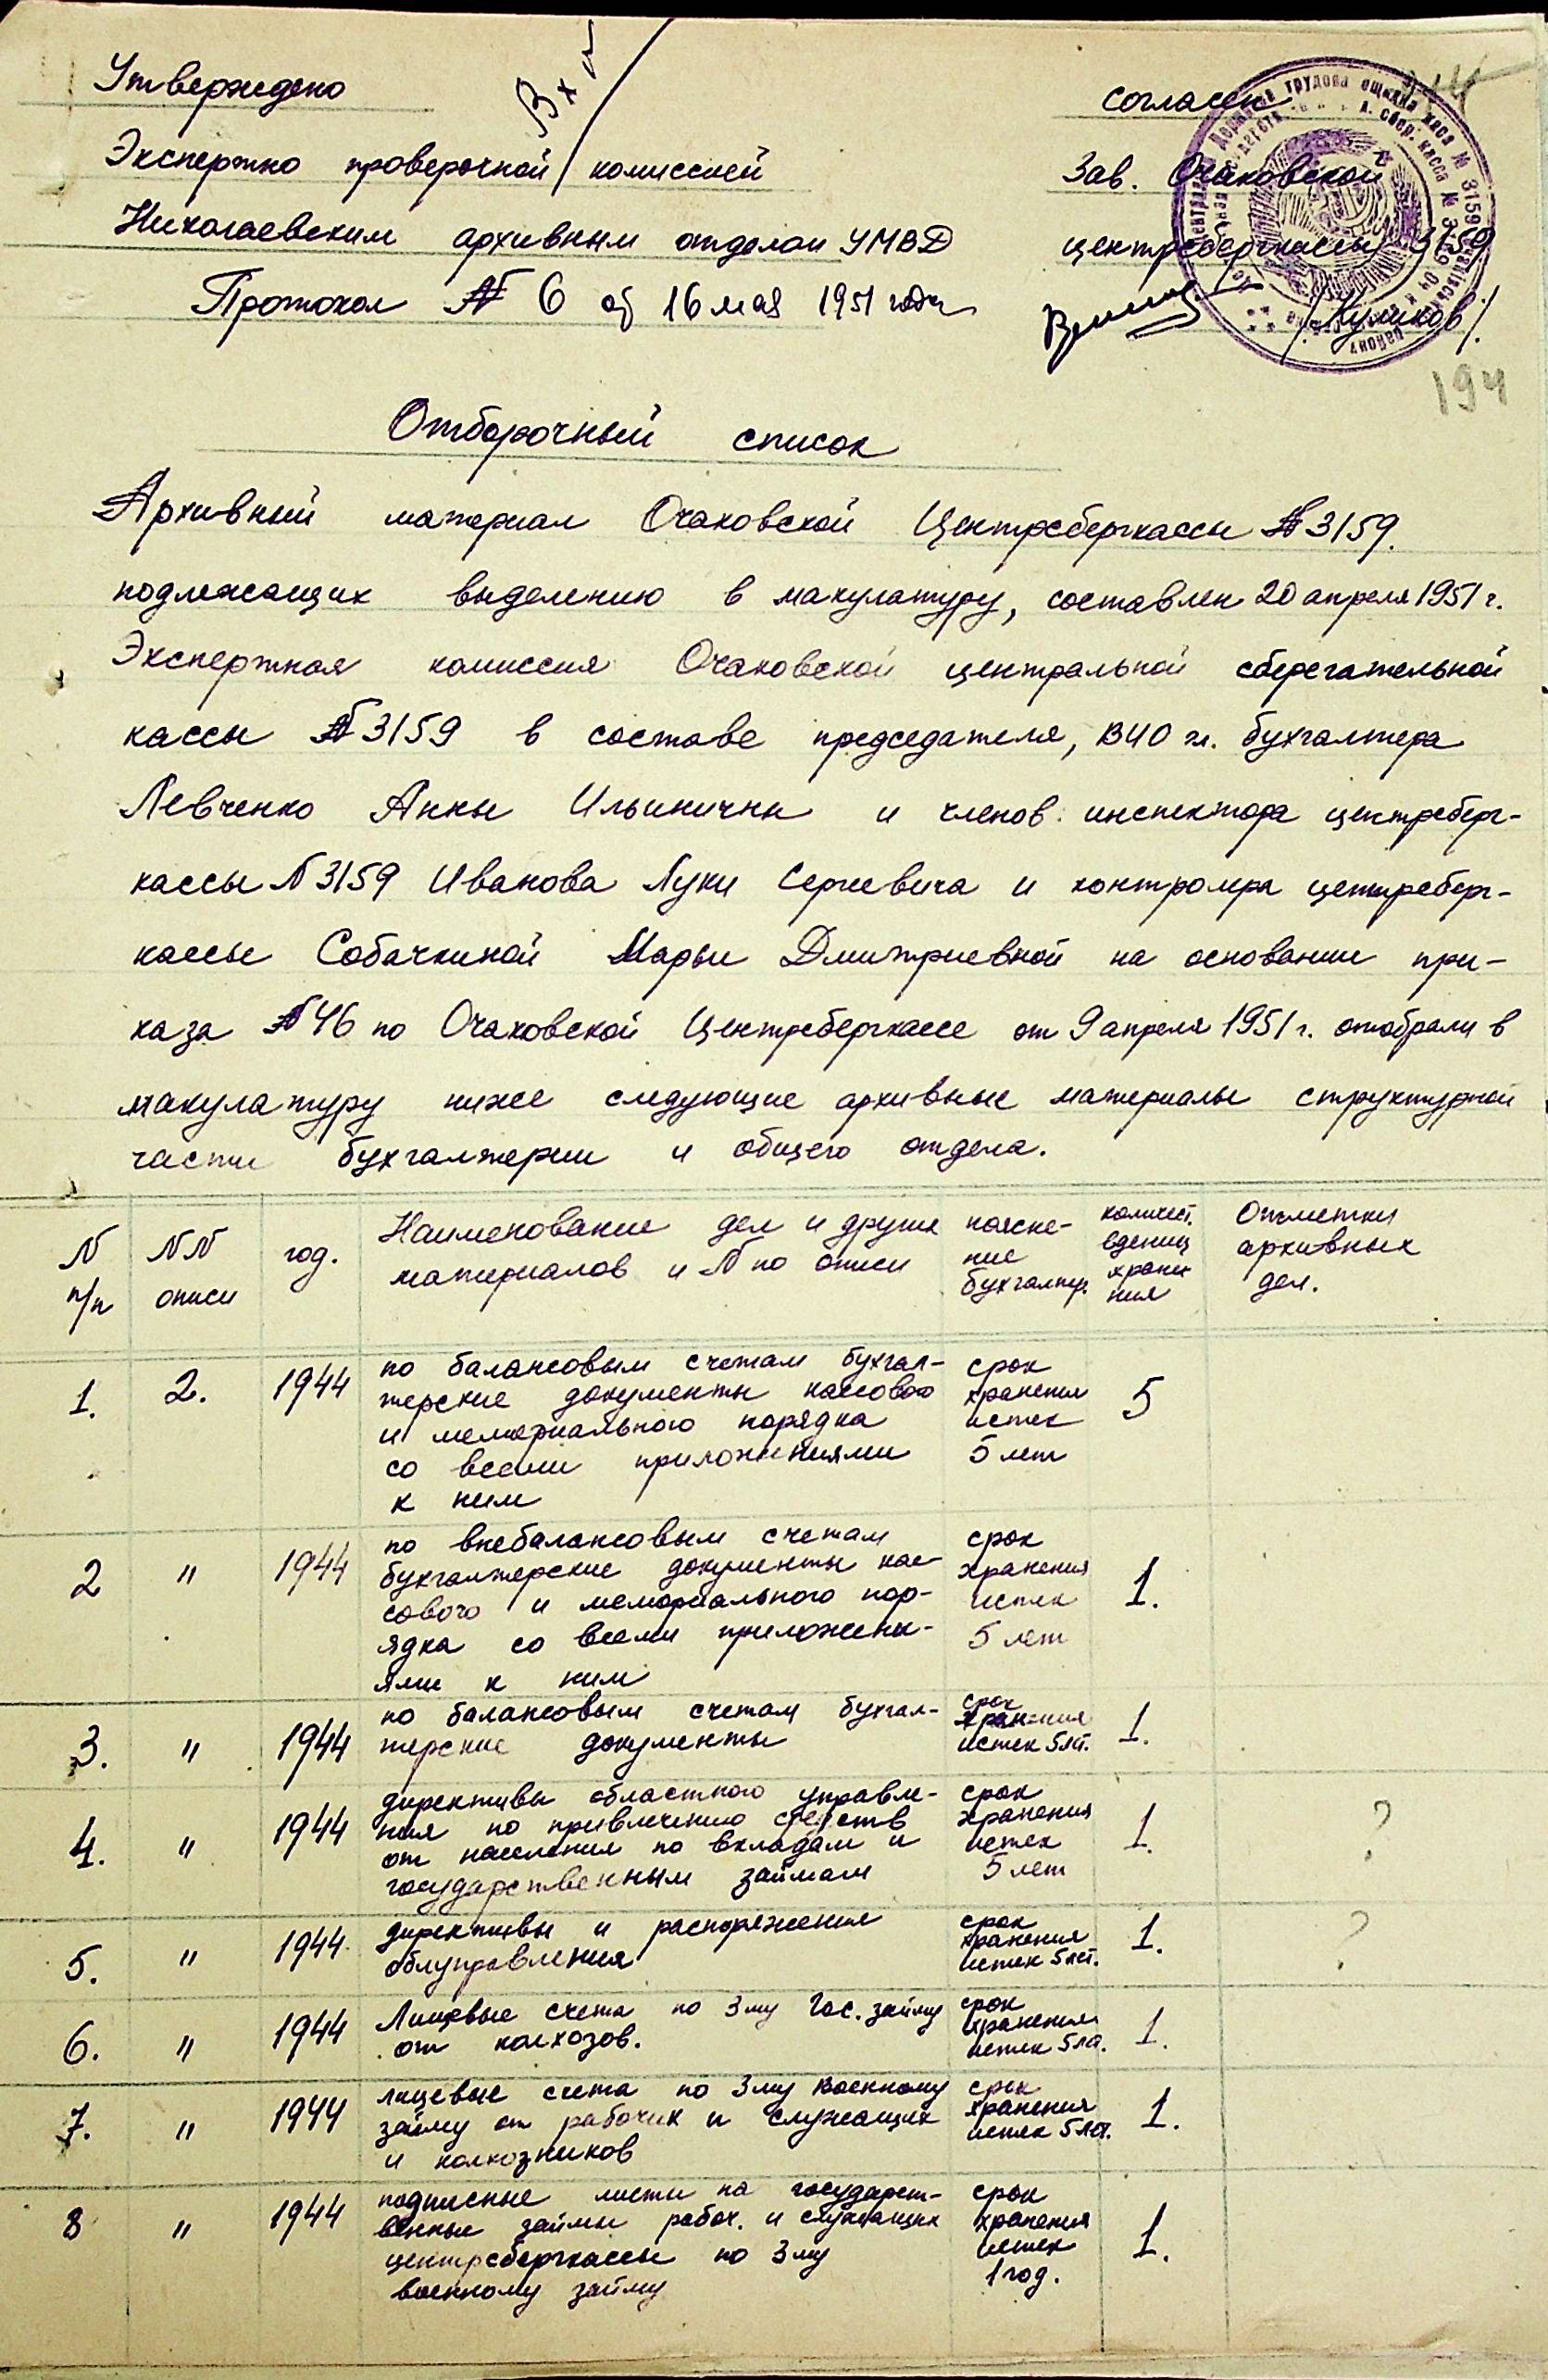 Утверждено
Вх
Экспертно проверочной комиссией
Николаевским архивным отделом УМВД
Протокол № 6 от 16 мая 1951 года
согласен
Зав. Очаковской
центрсберкассы 3159
/Куликов/
194
Отборочный список
Архивный материал Очаковской Центрсберкассы № 3159.
подлежащих выделению в макулатуру, составлен 20 апреля 1951 г.
Экспертная комиссия Очаковской центральной сберегательной
кассы № 3159 в составе председателя, гл. бухгалтера
Левченко Анны Ильиничны и членов: инспектора центрсбер-
кассы N 3159 Иванова Луки Сергевича и контролера центрсбер-
кассы Собачкиной Марьи Дмитриевной на основании при-
каза № 46 по Очаковской Центрсберкассе от 9 апреля 1951 г. отобрали в
макулатуру ниже следующие архивные материалы структурной
части бухгалтерии и общего отдела.
N п/п
NN описи
год.
Наименование дел и других материалов и N по описи
поясне-
ние
бухгалтер.
количест.
едениц
хране
ния
Отметки
архивных
дел.
1. 2. 1944
по балансовым счетам бухгал-
терские документы кассового
и мемориального порядка
со всеми приложениями
к ним
срок
хранения
истек
5 лет
5
2 " 1944
по внебалансовым счетам
бухгалтерские документы кас-
сового и мемориального пор-
ядка со всеми приложени-
ями к ним
срок
хранения
истек
5 лет
1.
3. " 1944
по балансовым счетам бухгал-
терские документы
срок
хранения
истек 5 лет.
1.
4. " 1944
директивы областного управле-
ния по привлечению средств
от населения по вкладам и
государственным займам
срок
хранения
истек
5 лет
1.
?
5. " 1944
директивы и распоряжения
облуправления
срок
хранения
истек 5 лет.
1.
?
6. " 1944
Лицевые счета по 3му Гос. займу
от колхозов.
срок
хранения
истек 5 ле.
1.
7. " 1944
лицевые счета по 3му военному
займу от рабочих и служащих
и колхозников
срок
хранения
истек 5 лет.
1.
8 " 1944
подписные листы на государст-
венные займы рабоч. и служащих
центрсберкассы по 3му
военному займу
срок
хранения
истек
1 год.
1.